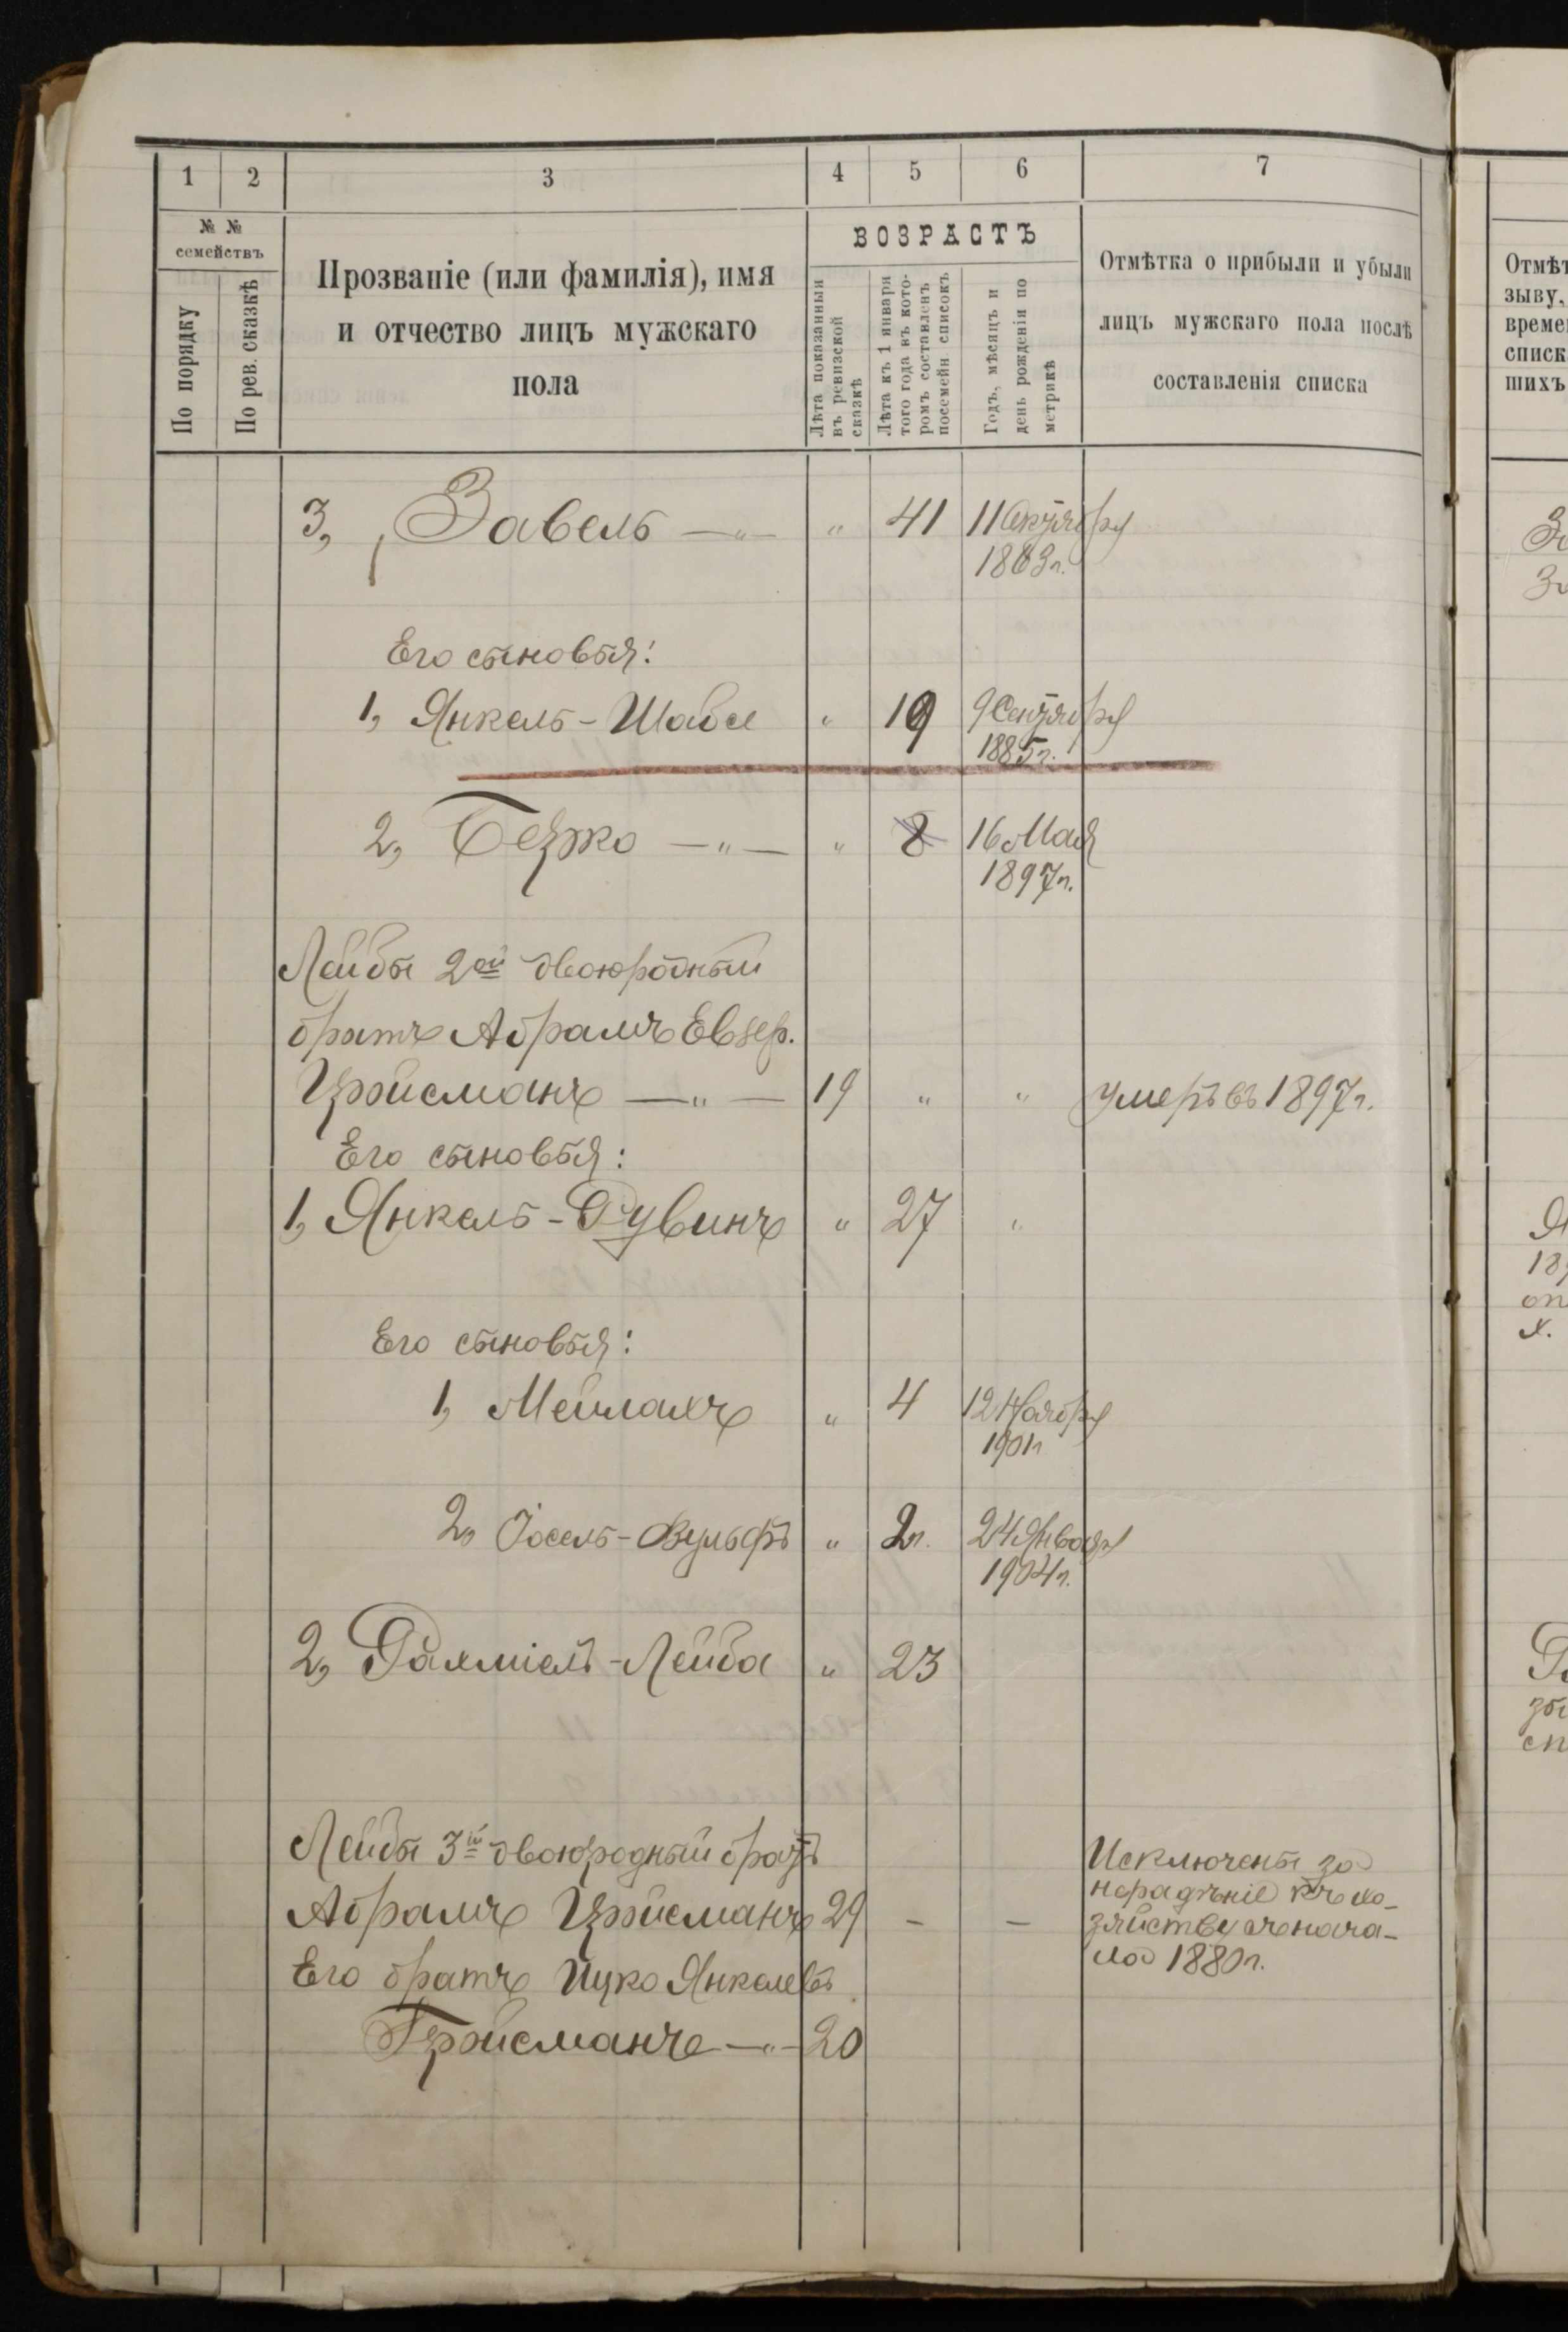 1 2 3 4 5 6 7
№ №
семействъ
По порядку
По рев. сказкѣ
Прозваніе (или фамилія), имя
и отчество лицъ мужскаго
пола
ВОЗРАСТЪ
Лѣта показанныя
въ ревизской
сказкѣ
Лѣта къ 1 января
того года въ кото-
ромъ составленъ
посемейн списокъ
Годъ, мѣсяцъ и
день рожденія по
метрикѣ
Отмѣтка о прибыли и убыли
лицъ мужскаго пола послѣ
составленія списка
Отмѣт
зыву,
време
списк
шихъ
3, Завель —"— " 41 11 Октября
1863 г.
Его сыновья:
1, Янкель-Шабсе " 19 9 Сентября
1885 г.
2, Берко —"— " 8 16 Мая
1897 г.
Лейбы 2ой двоюродный
братъ Абрамъ Евзер.
Гройсманъ —"— 19 " " умеръ въ 1897 г.
Его сыновья:
1, Янкель-Рувинъ " 27 "
Его сыновья:
1, Мейлахъ " 4 12 Ноября
1901 г
2, Іосель-Вульфъ " 2 г. 24 Января
1904 г.
2, Рахміель-Лейба " 23
Лейбы 3ій двоюродный братъ
Абрамъ Гройсманъ 29 - -
Его братъ Ицко Янкелевъ
Гройсманъ —"— 20
Исключены за
нерадѣніе къ хо-
зяйству съ нача-
ла 1880 г.